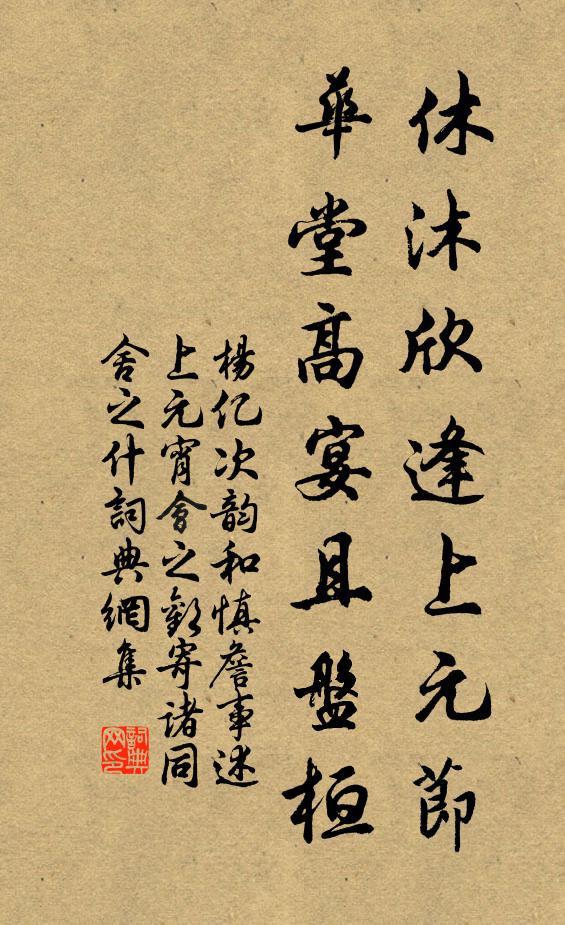 休沐欣逢上元節
華堂高宴且盤桓
楊亿次韵和慎詹事述
上元宵會之歡寄諸同
舍之什詞典網集
詞典网印